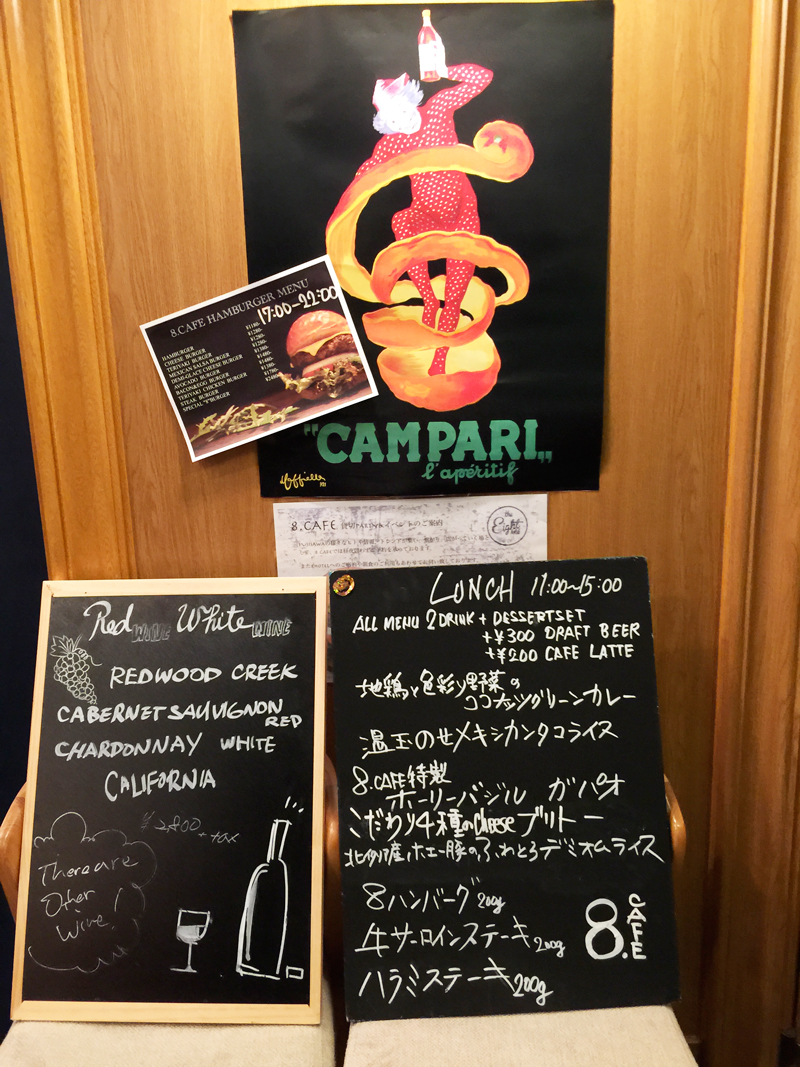 "CAMPARI"
l'apéritif
8.CAFE HAMBURGER MENU
17:00-22:00
HAMBURGER ¥1180-
CHEESE BURGER ¥1280-
TERIYAKI BURGER ¥1280-
MEXICAN SALSA BURGER
DEMI-GLACE CHEESE BURGER
AVOCADO BURGER
BACON&EGG BURGER
TERIYAKI CHICKEN BURGER
STEAK BURGER
SPECIAL "8"BURGER
8.CAFE
イベントのご案内
the
Eight
Red WINE White WINE
REDWOOD CREEK
CABERNET SAUVIGNON
RED
CHARDONNAY WHITE
CALIFORNIA
¥2,800 + tax
There are
Other
Wine!
LUNCH 11:00~15:00
ALL MENU 2DRINK + DESSERTSET
+¥300 DRAFT BEER
+¥200 CAFE LATTE
地鶏と色彩り野菜の
ココナッツグリーンカレー
温玉のせメキシカンタコライス
8.CAFE特製
ホーリーバジル ガパオ
こだわり4種のcheeseブリトー
北海道産ホエー豚のふわとろデミオムライス
8ハンバーグ200g
牛サーロインステーキ200g
ハラミステーキ200g
8.CAFE